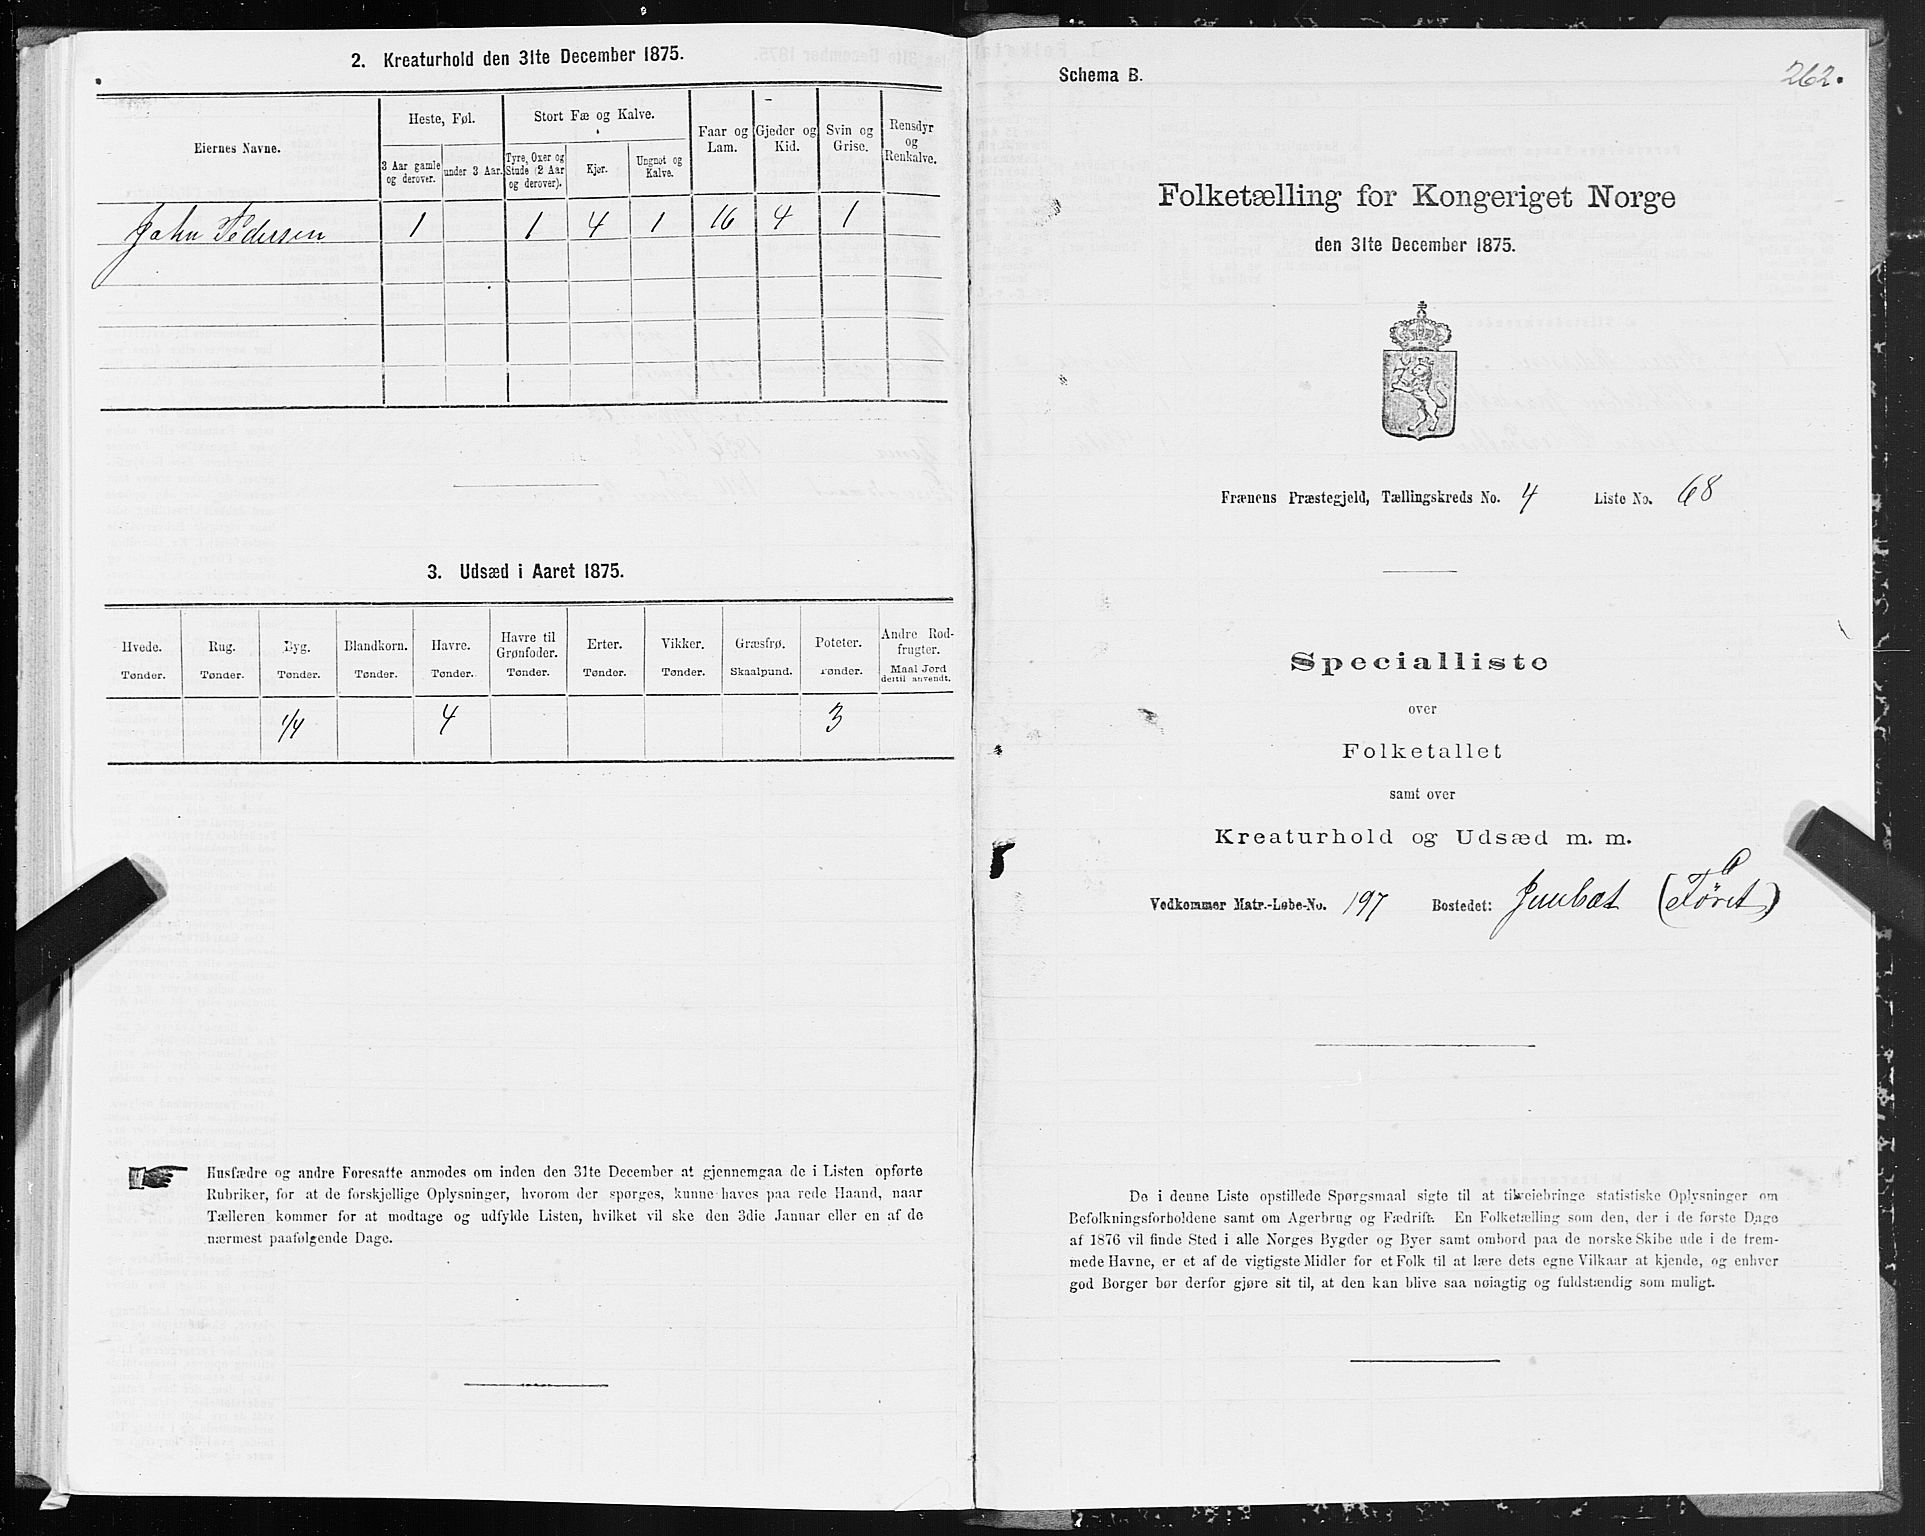 2. Kreaturhold den 31te December 1875.
Eiernes Navne.
Heste, Føl.
Stort Fæ og Kalve.
Faar og Lam.
Gjeder og Kid.
Svin og Grise.
Rensdyr og Renkalve.
3 Aar gamle og derover.
under 3 Aar.
Tyre, Oxer og Stude (2 Aar og derover).
Kjør.
Ungnøt og Kalve.
John Pedersen 1 1 4 1 16 4 1
3. Udsæd i Aaret 1875.
Hvede. Rug. Byg. Blandkorn. Havre. Havre til Grønfoder. Erter. Vikker. Græsfrø. Poteter. Andre Rodfrugter.
Tønder. Tønder. Tønder. Tønder. Tønder. Tønder. Tønder. Tønder. Skaalpund. Tønder. Maal Jord dertil anvendt.
1/4 4 3
Husfædre og andre Foresatte anmodes om inden den 31te December at gjennemgaa de i Listen opførte
Rubriker, for at de forskjellige Oplysninger, hvorom der spørges, kunne haves paa rede Haand, naar
Tælleren kommer for at modtage og udfylde Listen, hvilket vil ske den 3die Januar eller en af de
nærmest paafølgende Dage.
262.
Schema B.
Folketælling for Kongeriget Norge
den 31te December 1875.
Frænens Præstegjeld, Tællingskreds No. 4 Liste No. 68
Specialliste
over
Folketallet
samt over
Kreaturhold og Udsæd m. m.
Vedkommer Matr.-Løbe-No. 197 Bostedet:
De i denne Liste opstillede Spørgsmaal sigte til at tilveiebringe statistiske Oplysninger om
Befolkningsforholdene samt om Agerbrug og Fædrift. En Folketælling som den, der i de første Dage
af 1876 vil finde Sted i alle Norges Bygder og Byer samt ombord paa de norske Skibe ude i de frem-
mede Havne, er et af de vigtigste Midler for et Folk til at lære dets egne Vilkaar at kjende, og enhver
god Borger bør derfor gjøre sit til, at den kan blive saa nøiagtig og fuldstændig som muligt.